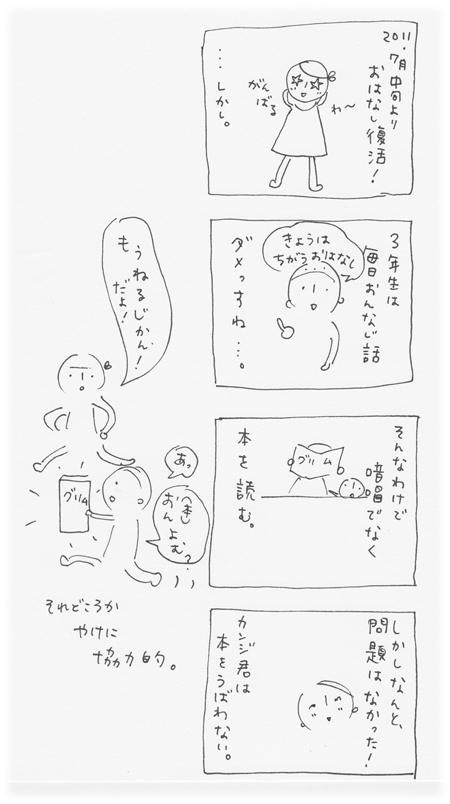 2011.7月中旬より
おはなし復活!
がんばる
わ〜
…しかし。
3年生は
毎日おんなじ話
きょうは
ちがうおはなし
ダメっすね…。
そんなわけで
暗唱でなく
グリム
本を読む。
しかしなんと、
問題はなかった!
カンジ君は
本をうばわない。
もうねるじかん!
だよ!
あっ
(本)
おんよむ?
グリム
それどころか
やけに
協力的。